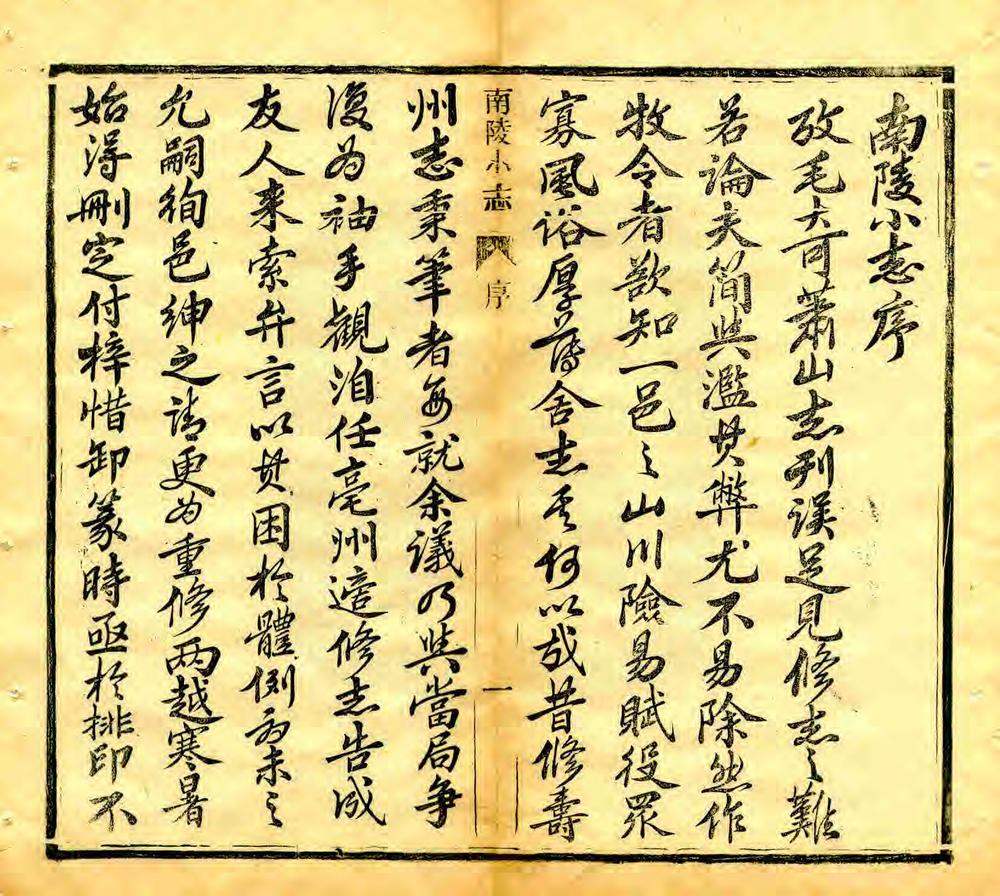 南陵小志序
攷毛大可蕭山志刊誤足見修志之難
若論夫簡與濫其弊尤不易除然作
牧令者欲知一邑之山川險易賦役眾
寡風俗厚薄舍志乎何以哉昔修壽
南陵小志 序 一
州志秉筆者每就余議乃與當局爭
復為袖手觀洎任亳州適修志告成
友人來索弁言以其困於體例尚未之
允嗣徇邑紳之請更為重修兩越寒暑
始得刪定付梓惜卸篆時亟於排印不